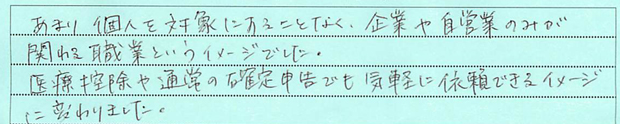 あまり個人を対象にすることなく、企業や自営業のみが
関わる職業というイメージでした。
医療控除や通常の確定申告でも気軽に依頼できるイメージ
に変わりました。